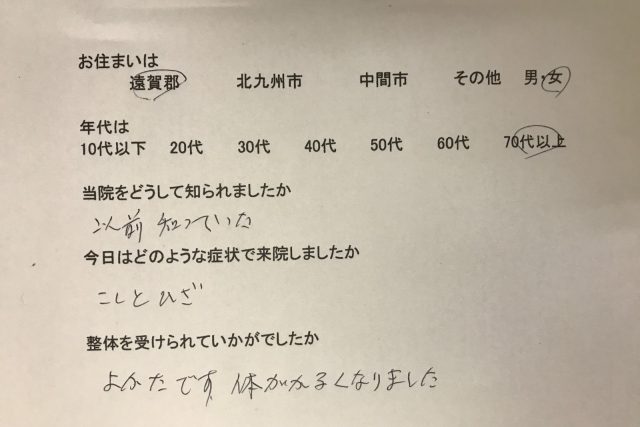 お住まいは
遠賀郡 北九州市 中間市 その他 男・女
年代は
10代以下 20代 30代 40代 50代 60代 70代以上
当院をどうして知られましたか
以前知っていた
今日はどのような症状で来院しましたか
こしとひざ
整体を受けられていかがでしたか
よかたです 体がかるくなりました